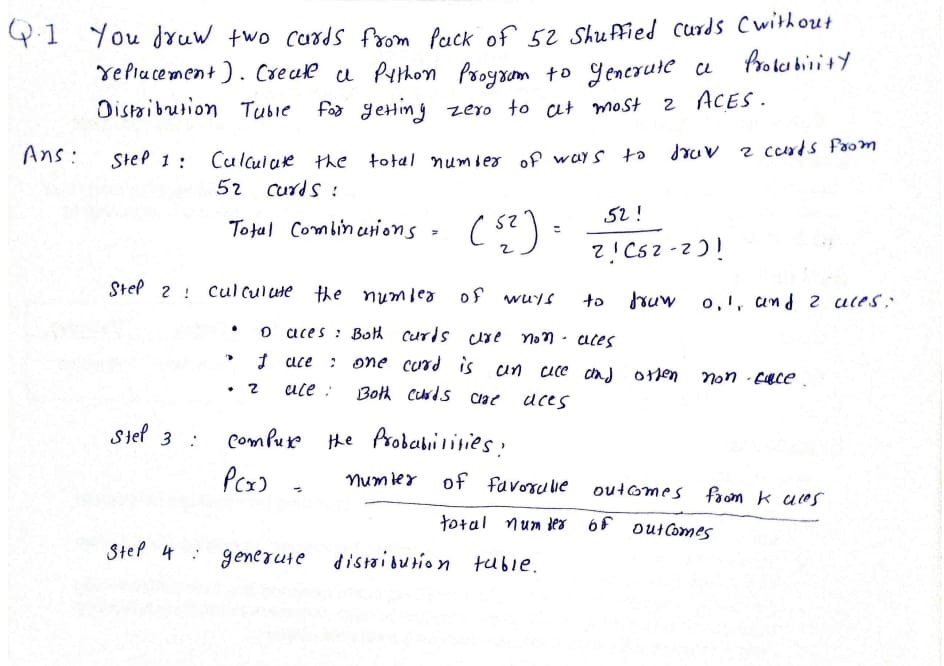 Q.1 You draw two cards from Pack of 52 Shuffled cards (without
replacement). Create a Python Program to generate a Probability
Distribution Table for getting zero to at most 2 ACES.
Ans: Step 1: Calculate the total number of ways to draw 2 cards From
52 cards:
Total Combinations = (52 2) = 52! / 2!(52-2)!
Step 2: Calculate the number of ways to draw 0, 1, and 2 aces:
• 0 aces: Both cards are non-aces
• 1 ace: one card is an ace and other non-ace.
• 2 ace: Both cards are aces
Step 3: Compute the Probabilities:
P(x) = number of favorable outcomes from k aces
total number of outcomes
Step 4: generate distribution table.